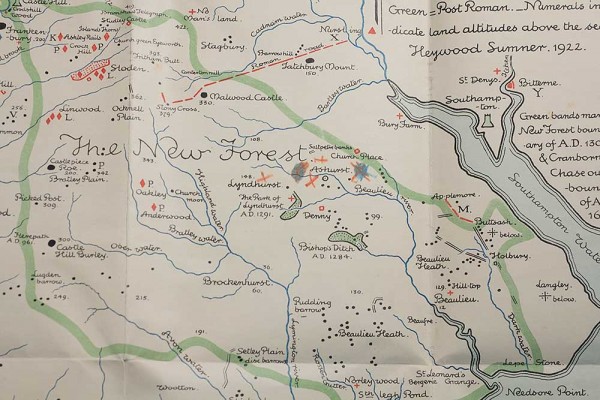 Green = Post Roman. — Numerals in-
dicate land altitudes above the se
Heywood Sumner. 1922.
Cadnam water
Nursling
Stagbury.
Roman road
Tatchbury Mount
150
St Denys.
Bitterne.
Y.
Southamp-
ton.
Bartley Water
Malwood Castle.
330.
Stoney Cross
Sloden
L.
K
P
Linwood.
Ocknell
Plain.
L
V
Bury Farm.
Green bands mar
New Forest boun
ary of A.D. 130
& Cranborn
Chase ou
-boun
of A.
16
Southampton Water
The New Forest
Church Place
Ashurst.
Lyndhurst
Beaulieu river
The Park of
Lyndhurst
A.D. 1291.
Denny
99.
Bishop's Ditch
A.D. 1284.
Castlepiece
Roe.
P
Bratley Plain.
Picked Post.
309
Oakley
P
Church
moor
P
Anderwood
Highland water
Bratley water
Ober water
Castle
Hill Burley.
300
Lugden
barrow
249.
215.
191.
Brockenhurst.
60.
Applemore.
M.
Buttsash.
below.
Holbury.
Beaulieu
Heath.
Hill-top
Beaulieu.
Langley.
below.
Dark water
130
Pudding
barrow
Beaulieu Heath.
Beaufre.
Lymington river
Avon Water
Setley Plain
disc barrows
Wootton.
Norley wood
St Leonard's
Bergerie Grange.
Sowley Pond.
Lepe
Stone.
Needsore Point.